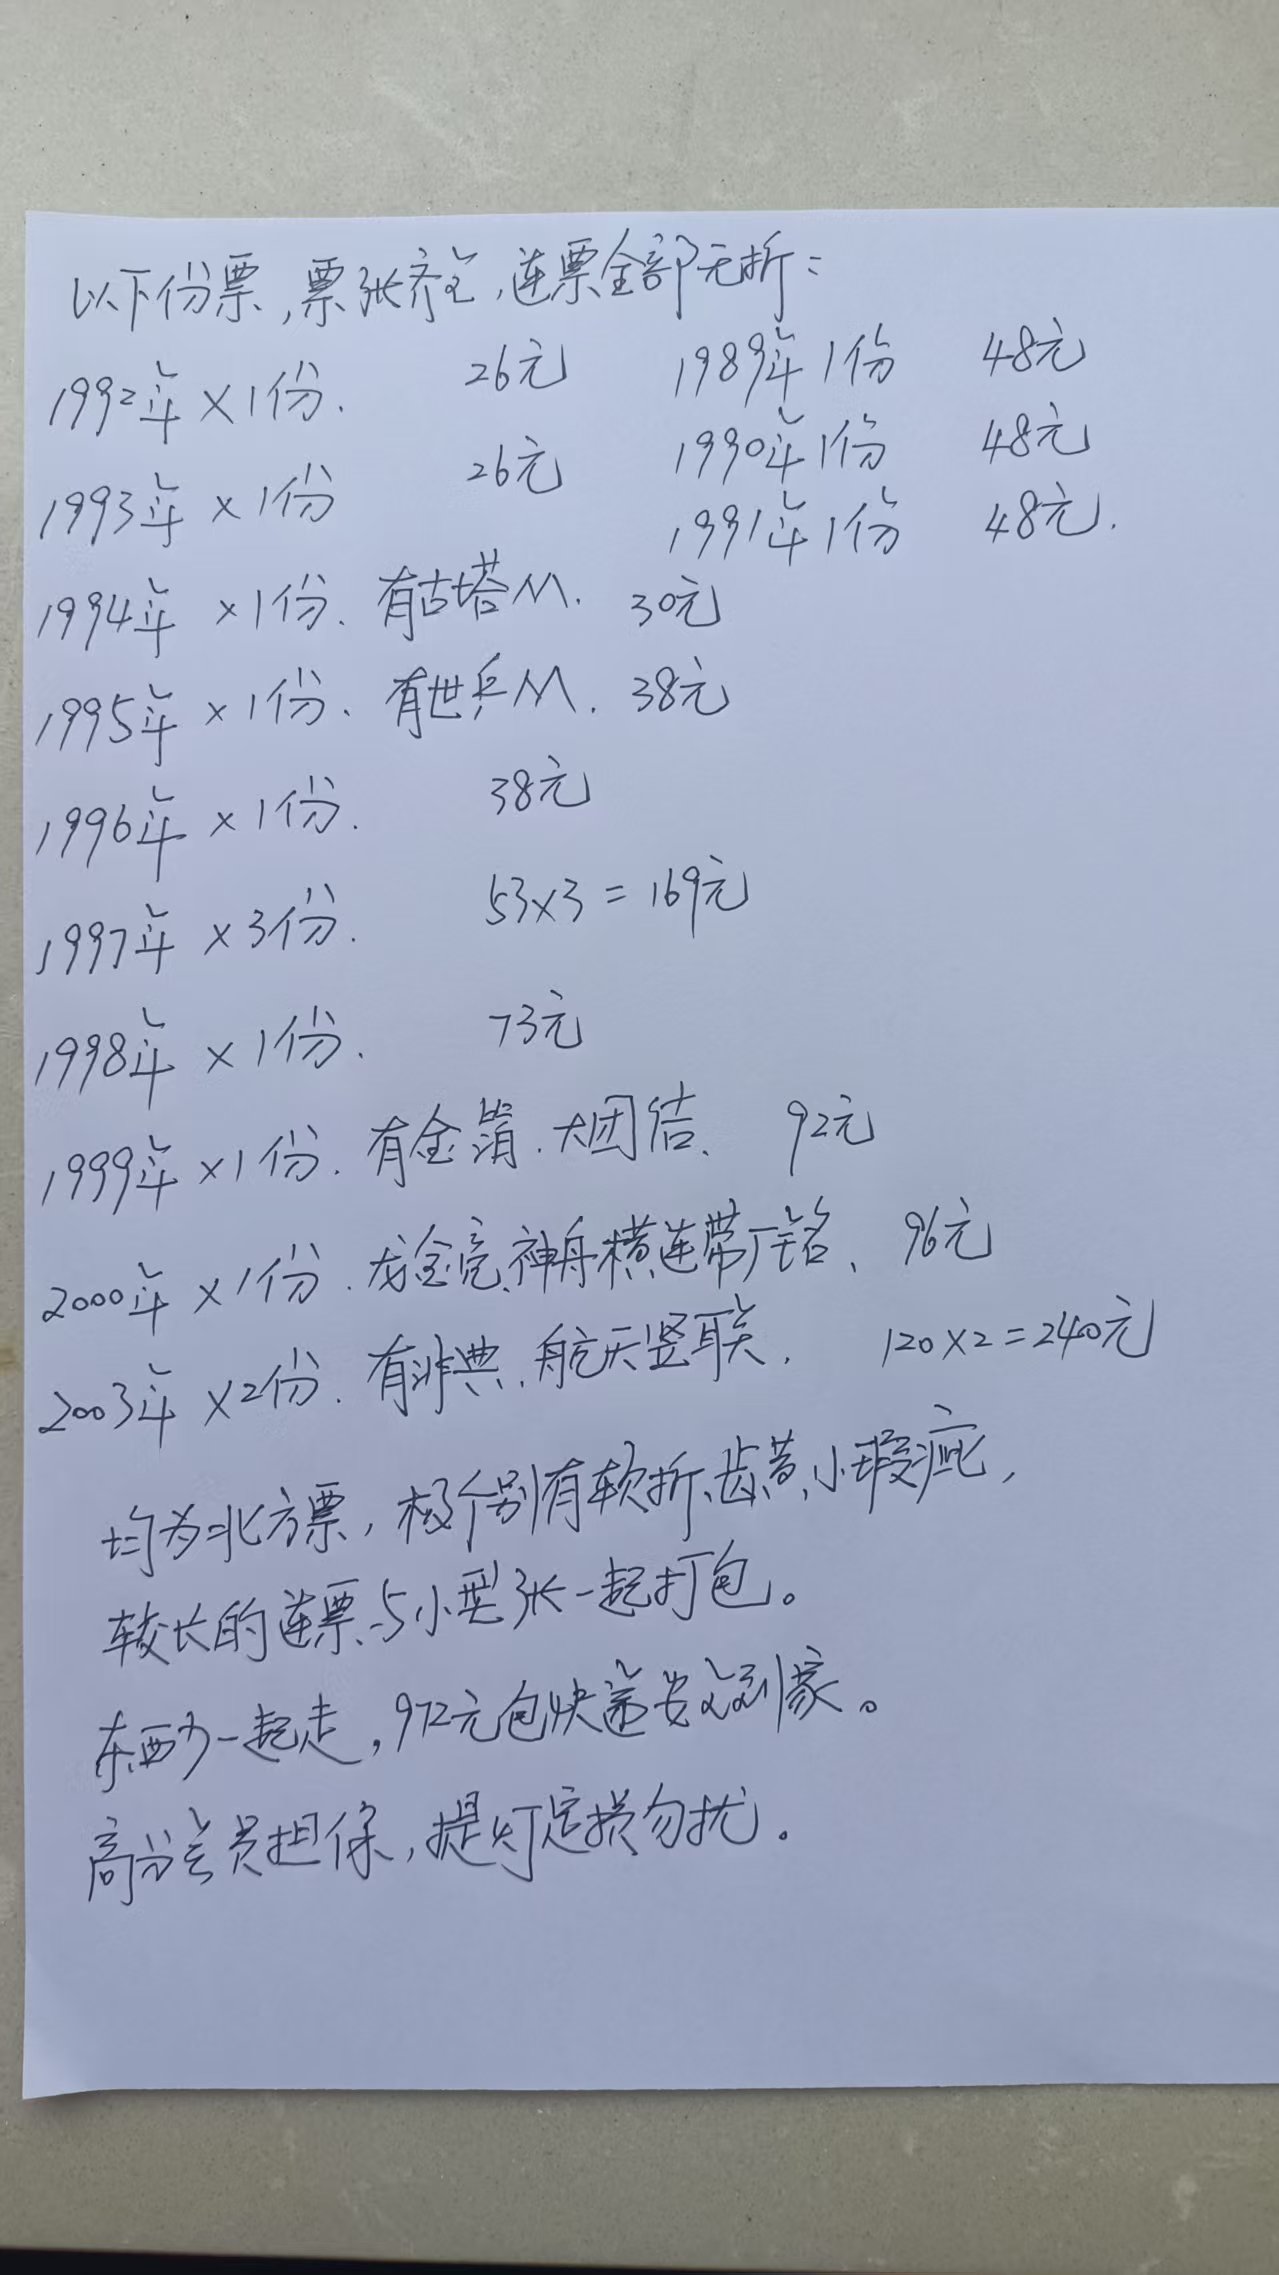 以下份票,票张齐全,连票全部无折:
1992年×1份. 26元 1989年1份 48元
1993年×1份 26元 1990年1份 48元
1991年1份 48元.
1994年×1份.有古塔M. 30元
1995年×1份、有世乒M. 38元
1996年×1份. 38元
1997年×3份. 53×3=169元
1998年×1份. 73元
1999年×1份.有金箔.大团结、 92元
2000年×1份.龙金亮、神舟横连带厂铭、 96元
2003年×2份.有非典.航天竖联. 120×2=240元
均为北方票,极个别有软折、齿黄、小瑕疵,
较长的连票与小型张一起打包。
东西少一起走,972元包快递安全到家。
高分会员担保,提灯定损勿扰。